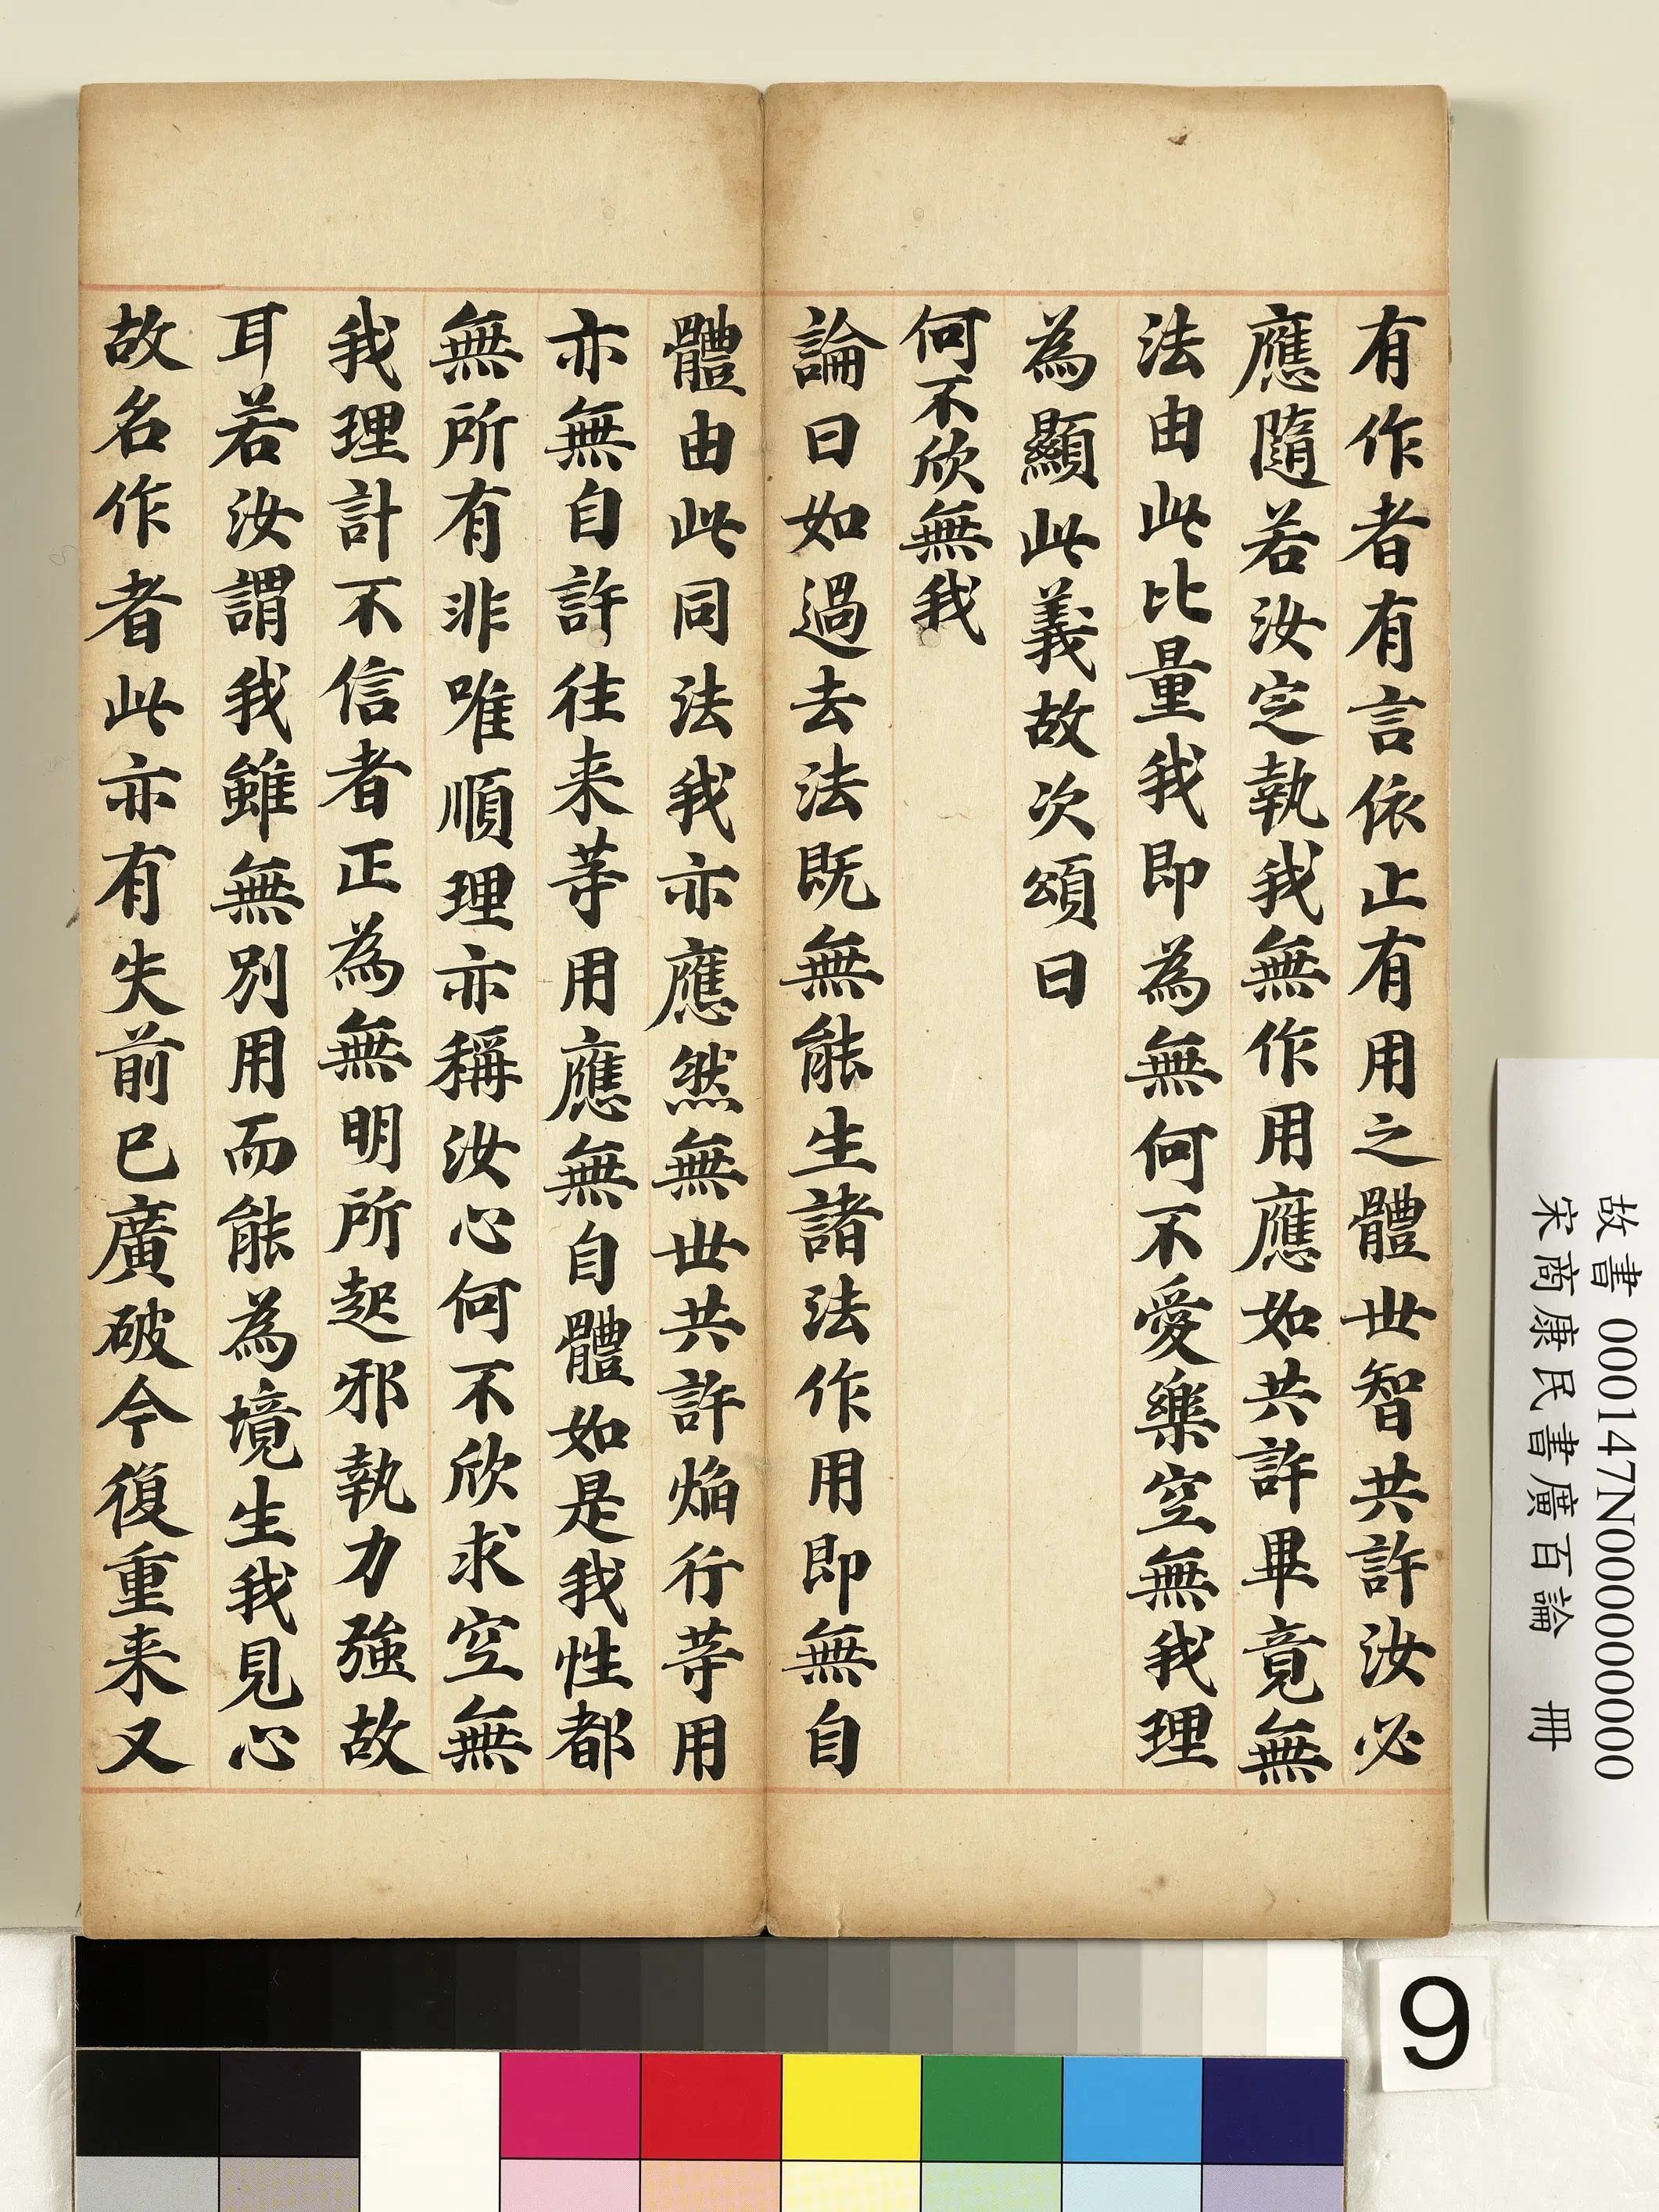 有作者有言依止有用之體世智共許汝必
應隨若汝定執我無作用應如共許畢竟無
法由此比量我即為無何不愛樂空無我理
為顯此義故次頌曰
何不欣無我
論曰如過去法既無能生諸法作用即無自
體由此同法我亦應然無世共許焰行等用
亦無自許往来等用應無自體如是我性都
無所有非唯順理亦稱汝心何不欣求空無
我理計不信者正為無明所起邪執力強故
耳若汝謂我雖無別用而能為境生我見心
故名作者此亦有失前已廣破今復重来又
故書 000147N000000000
宋商康民書廣百論 冊
9